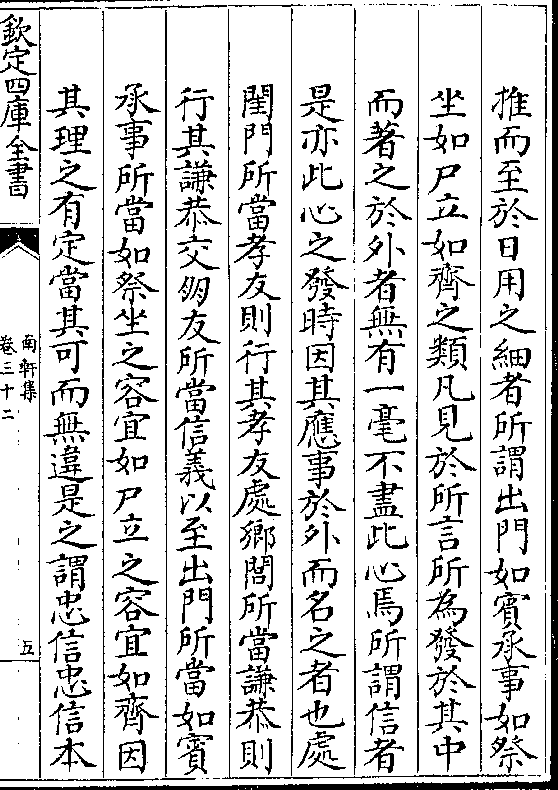 推而至於日用之細者所謂出門如賓承事如祭
坐如尸立如齊之類凡見於所言所為發於其中
而著之於外者無有一毫不盡此心焉所謂信者
是亦此心之發時因其應事於外而名之者也處
閨門所當孝友則行其孝友處鄉閭所當謙恭則
行其謙恭交朋友所當信義以至出門所當如賓
承事所當如祭坐之容宜如尸立之容宜如齊因
其理之有定當其可而無違是之謂忠信忠信本
欽定四庫全書
南軒集
卷三十二
五